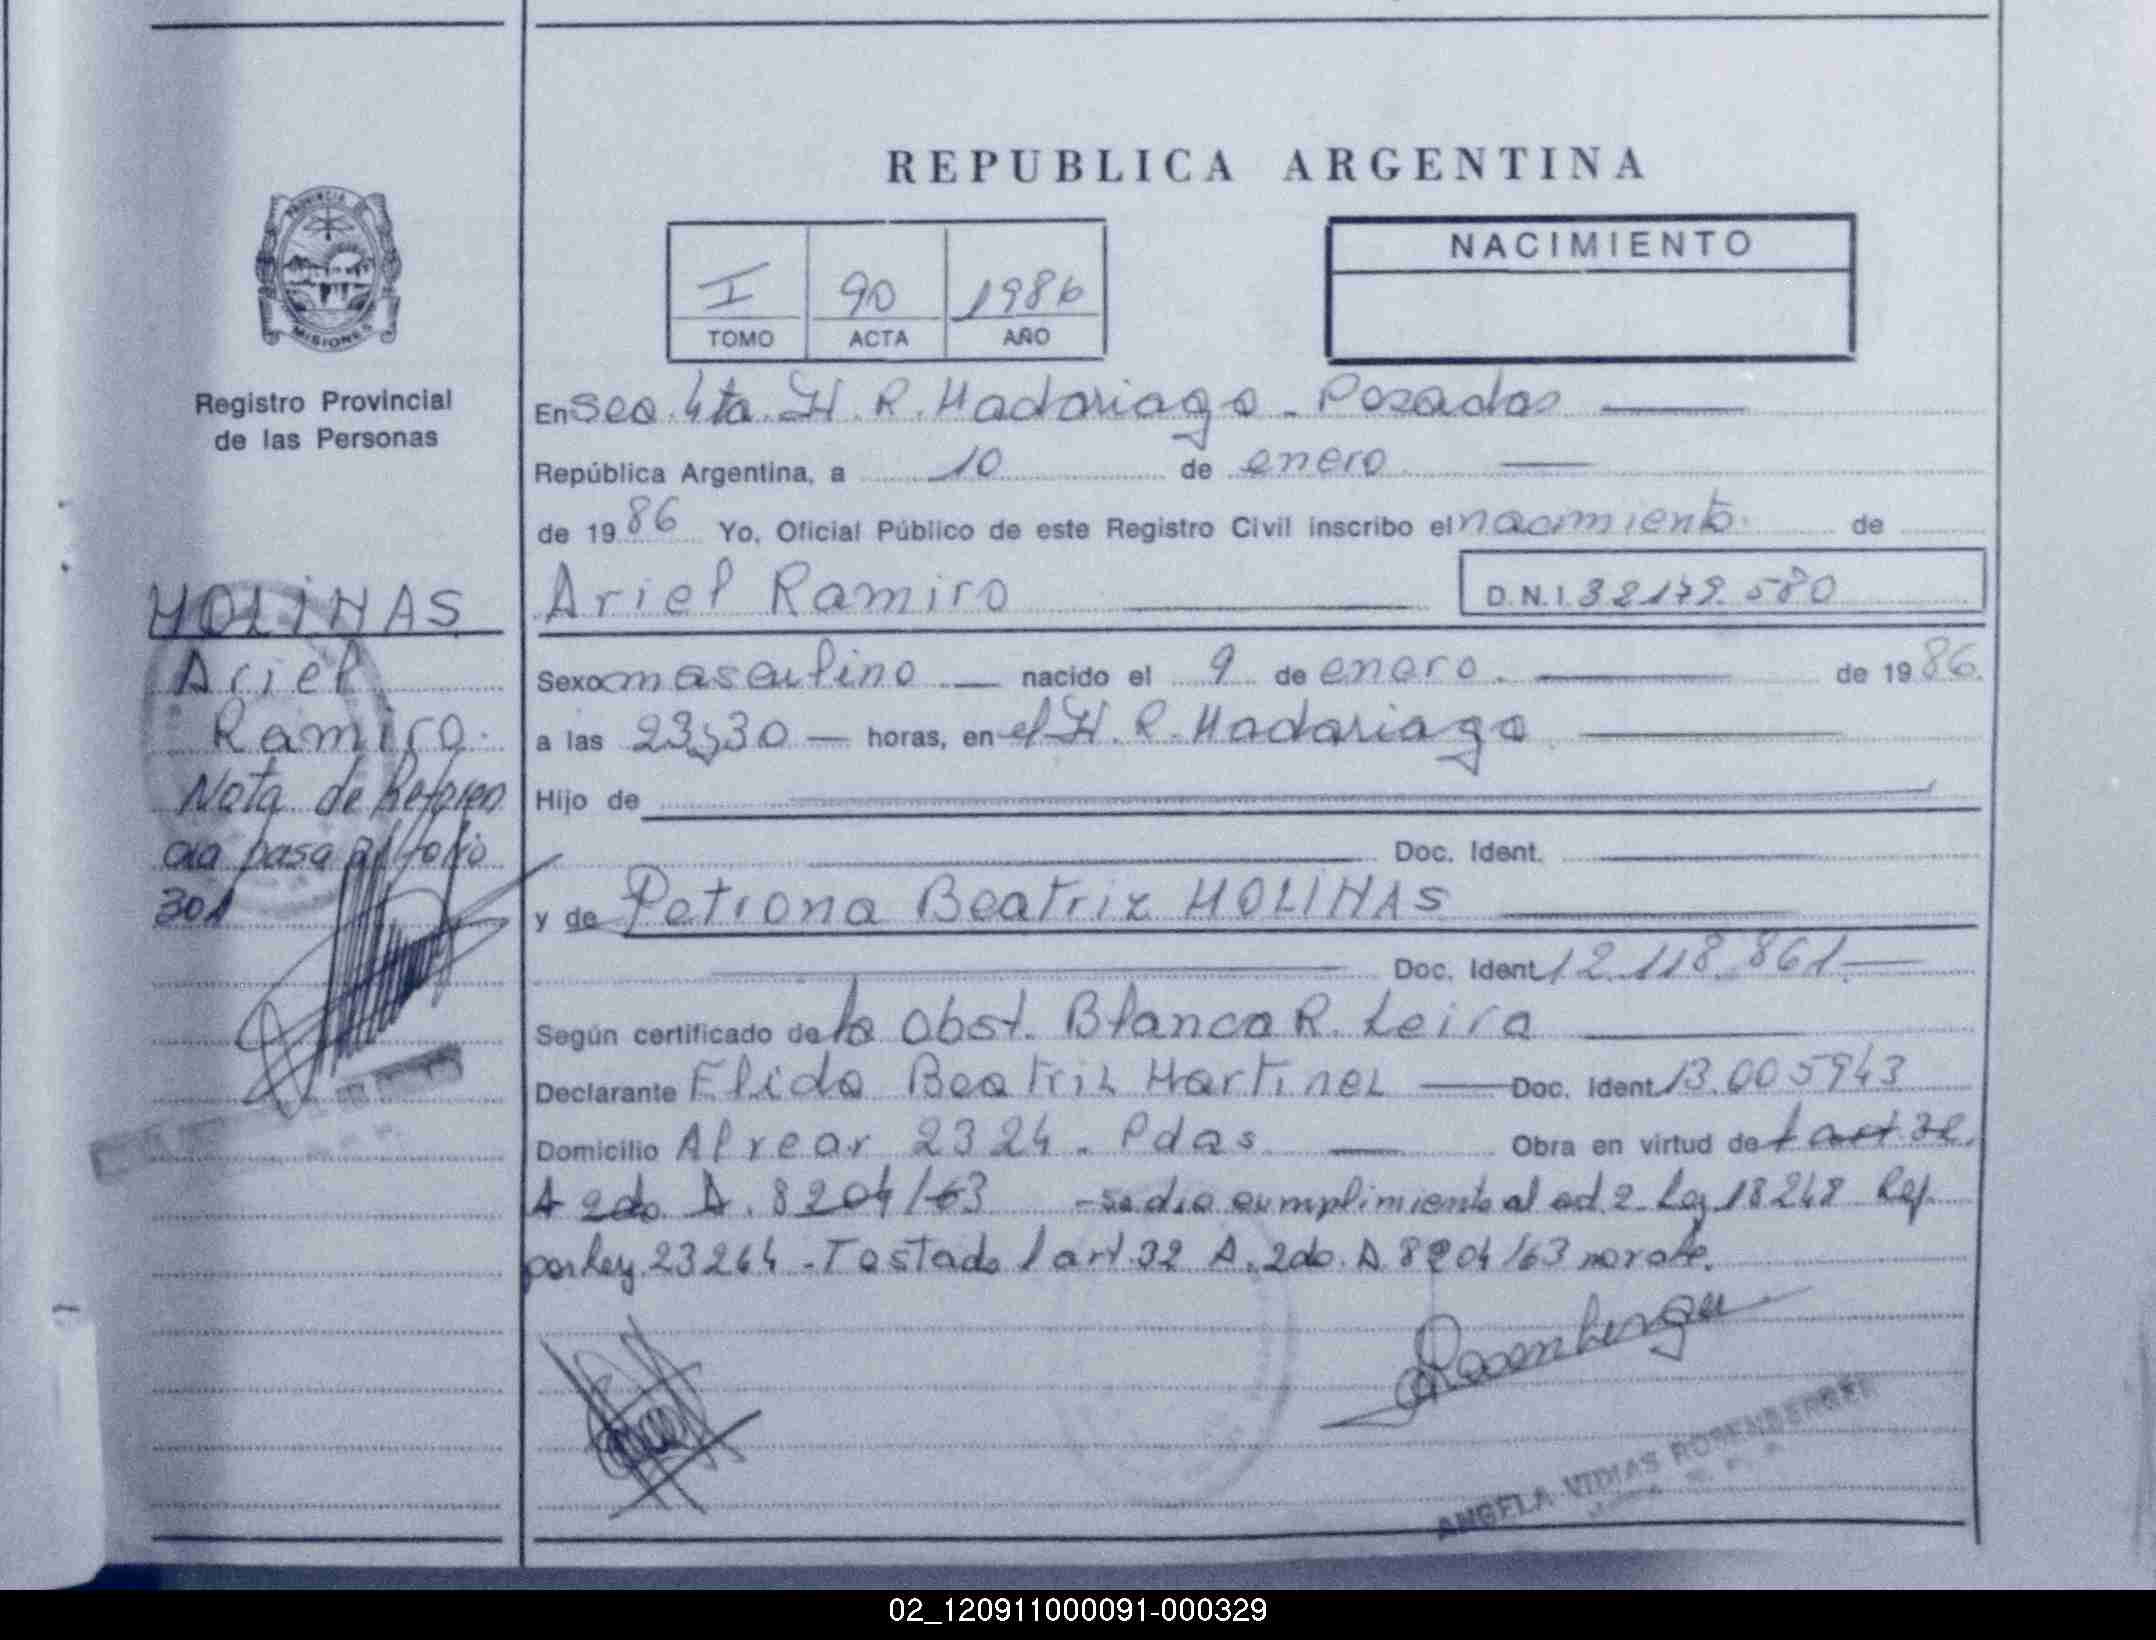 REPUBLICA ARGENTINA
PROVINCIA DE
MISIONES
Registro Provincial
de las Personas
I 90 1986
TOMO ACTA AÑO
NACIMIENTO
En Sec. 4ta. H. R. Madariaga - Posadas
República Argentina, a 10 de enero
de 1986 Yo, Oficial Público de este Registro Civil inscribo el nacimiento de
Ariel Ramiro D.N.I. 32179.580
Sexo masculino nacido el 9 de enero de 1986.
a las 23,30 horas, en el H. R. Madariaga
Hijo de
Doc. Ident.
y de Petrona Beatriz MOLINAS
Doc. Ident. 12.118.861
Según certificado de la Obst. Blanca R. Leira
Declarante Elida Beatriz Martinez Doc. Ident. 13.005943
Domicilio Alvear 2324 - Pdas Obra en virtud de l art 32
A 2do. D. 8204/63 - se dio cumplimiento al art 2 Ley 18248 Ref.
por Ley 23264 - Testado l art 32 A. 2do. D. 8204/63 no vale.
MOLINAS
Ariel
Ramiro.
Nota de Referen
cia pasa al folio
301
Rosenberger
ANGELA VIDIAS ROSENBERGER
02_120911000091-000329